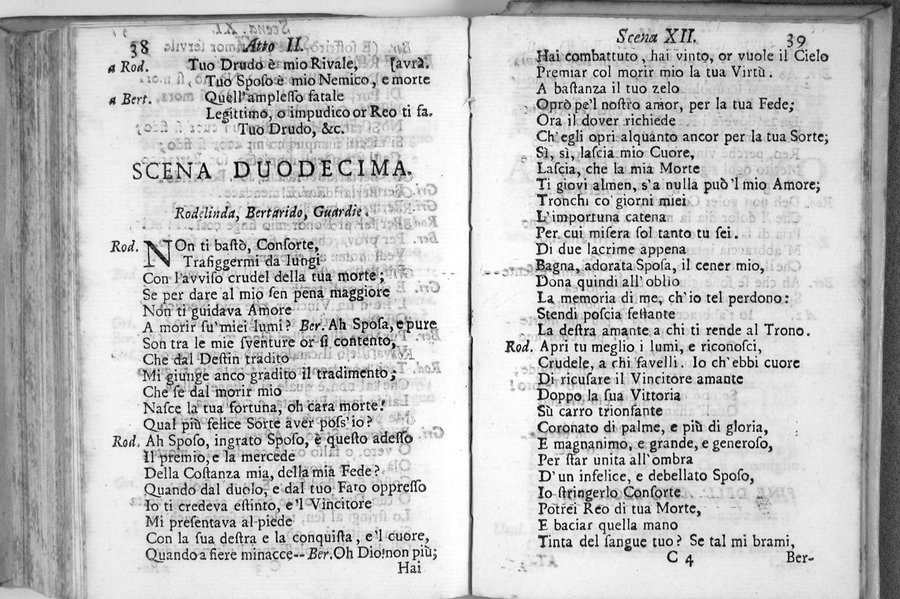 38 Atto II.
a Rod. Tuo Drudo è mio Rivale, [avrà.
Tuo Sposo è mio Nemico, e morte
a Bert. Quell'amplesso fatale
Legittimo, o impudico or Reo ti fa.
Tuo Drudo, &c.
SCENA DUODECIMA.
Rodelinda, Bertarido, Guardie.
Rod. NOn ti bastò, Consorte,
Trafiggermi da lungi
Con l'avviso crudel della tua morte;
Se per dare al mio sen pena maggiore
Non ti guidava Amore
A morir su' miei lumi? Ber. Ah Sposa, e pure
Son tra le mie sventure or sì contento,
Che dal Destin tradito
Mi giunge anco gradito il tradimento;
Che se dal morir mio
Nasce la tua fortuna, oh cara morte!
Qual più felice Sorte aver poss'io?
Rod. Ah Sposo, ingrato Sposo, è questo adesso
Il premio, e la mercede
Della Costanza mia, della mia Fede?
Quando dal duolo, e dal tuo Fato oppresso
Io ti credeva estinto, e'l Vincitore
Mi presentava al piede
Con la sua destra e la conquista, e'l cuore,
Quando a fiere minacce-- Ber. Oh Dio! non più;
Hai
Scena XII. 39
Hai combattuto, hai vinto, or vuole il Cielo
Premiar col morir mio la tua Virtù.
A bastanza il tuo zelo
Oprò pe'l nostro amor, per la tua Fede;
Ora il dover richiede
Ch'egli opri alquanto ancor per la tua Sorte;
Sì, sì, lascia mio Cuore,
Lascia, che la mia Morte
Ti giovi almen, s'a nulla può'l mio Amore;
Tronchi co' giorni miei
L'importuna catena
Per cui misera sol tanto tu sei.
Di due lacrime appena
Bagna, adorata Sposa, il cener mio,
Dona quindi all' oblio
La memoria di me, ch'io tel perdono:
Stendi poscia festante
La destra amante a chi ti rende al Trono.
Rod. Apri tu meglio i lumi, e riconosci,
Crudele, a chi favelli. Io ch'ebbi cuore
Di ricusare il Vincitore amante
Doppo la sua Vittoria
Sù carro trionfante
Coronato di palme, e più di gloria,
E magnanimo, e grande, e generoso,
Per star unita all'ombra
D'un infelice, e debellato Sposo,
Io stringerlo Consorte
Potrei Reo di tua Morte,
E baciar quella mano
Tinta del sangue tuo? Se tal mi brami,
C 4 Ber-